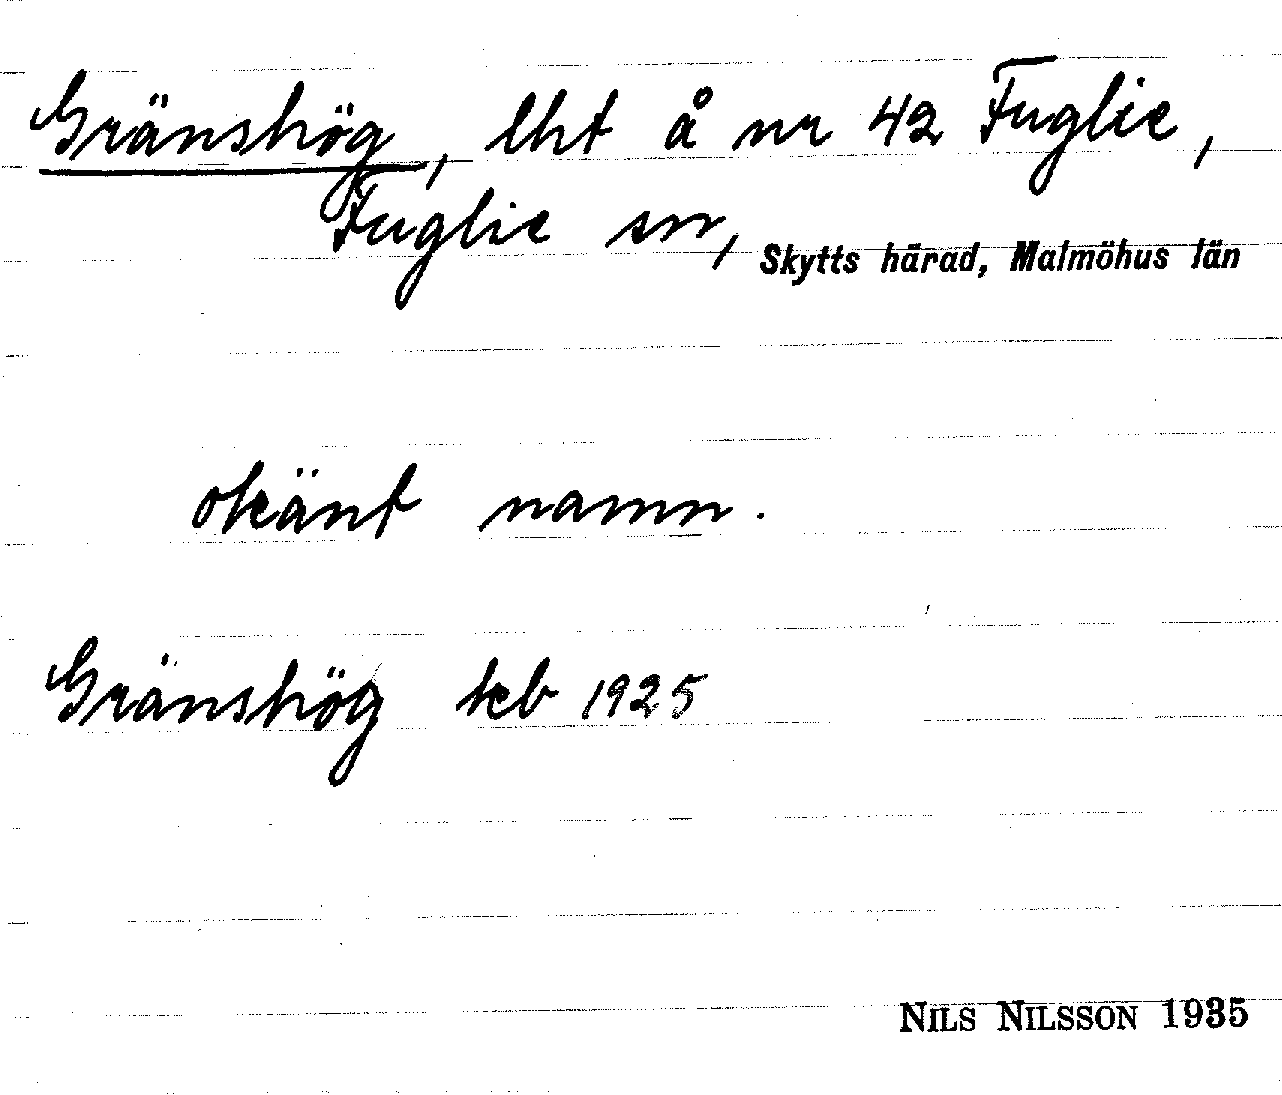 Gränshög, lht å nr 42 Fuglie,
Fuglie sn, Skytts härad, Malmöhus län
okänt namn.
Gränshög kb 1925
NILS NILSSON 1935